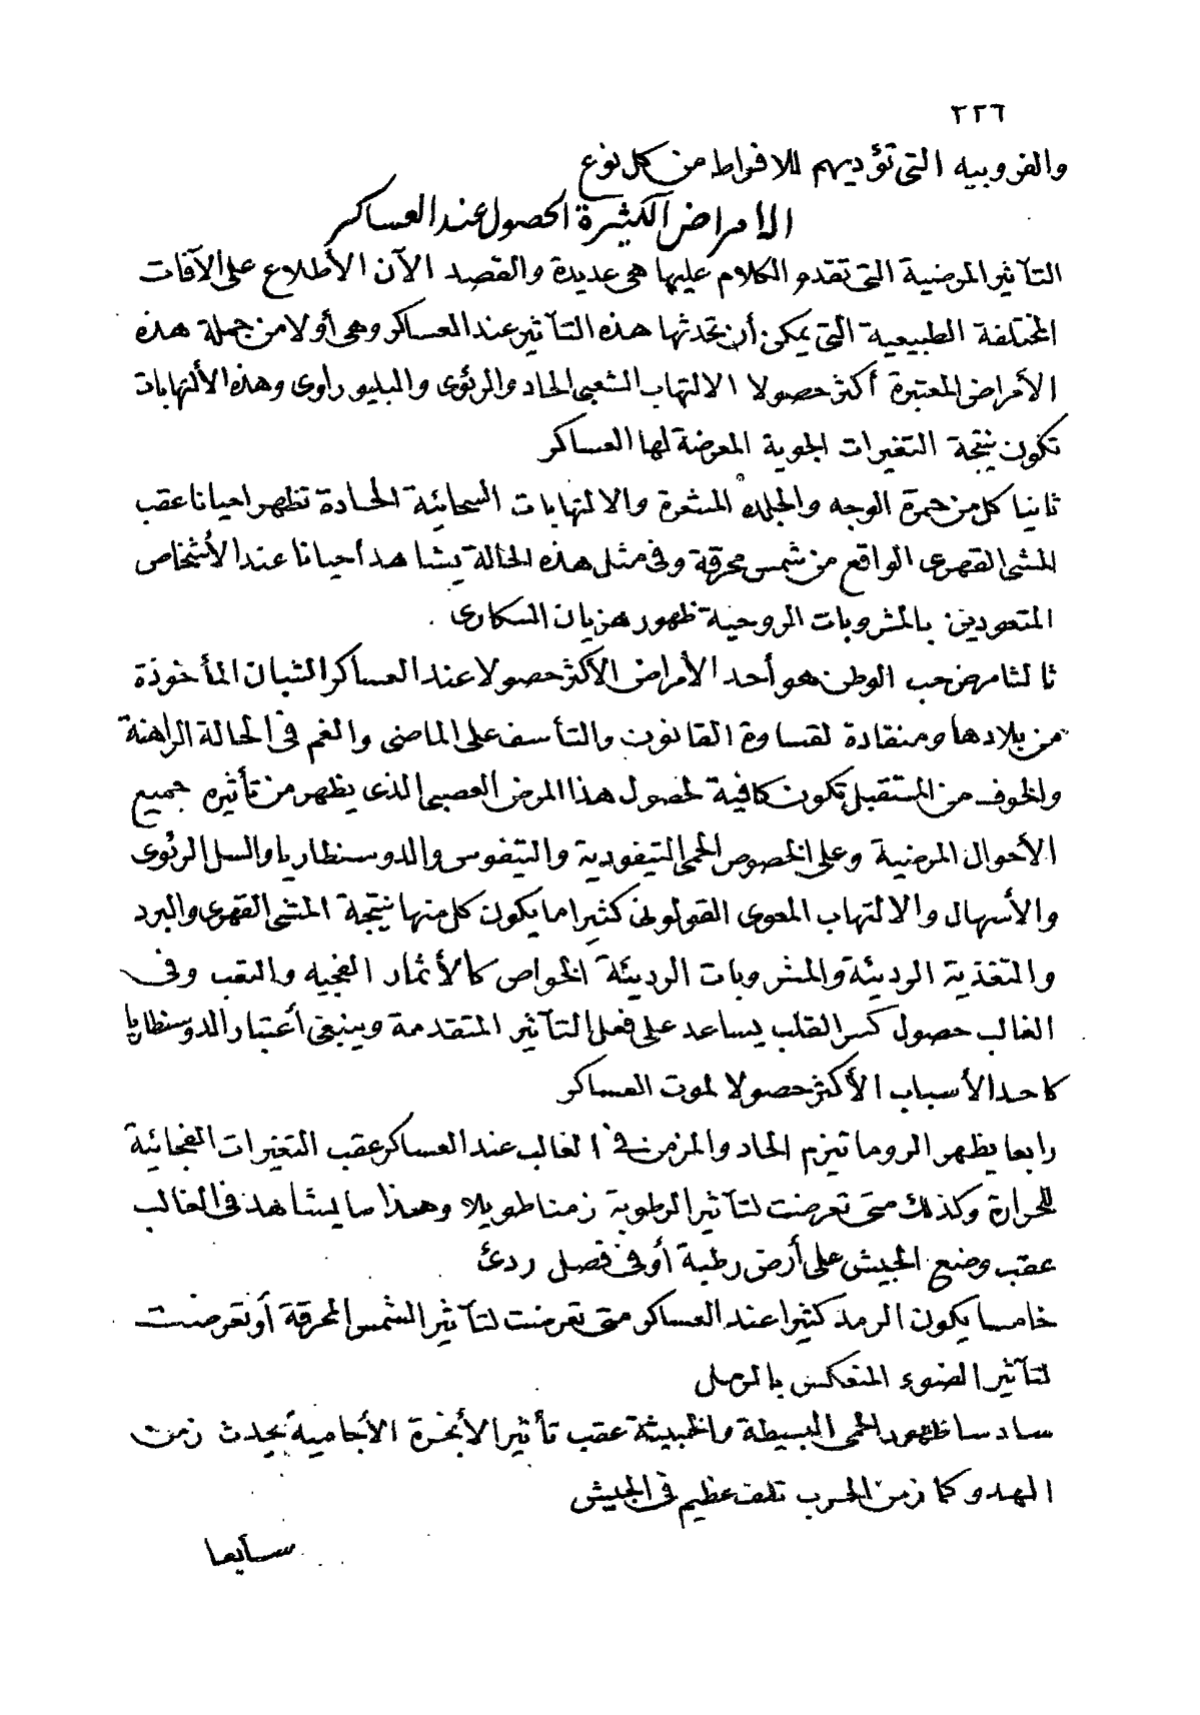 ٢٢٦
والغروبيه التى تؤديهم للافراط من كل نوع
الامراض الكثيرة الحصول عند العساكر
التآثير المرضية التى تقدم الكلام عليها هى عديدة والقصد الآن الأطلاع على الآفات
المختلفة الطبيعية التى يمكن أن تحدثها هذه التآثير عند العساكر وهى أولا من جملة هذه
الأمراض المعتبرة أكثر حصولا الالتهاب الشعبى الحاد والرئوى والبليوراوى وهذه الألتهابات
تكون نتيجة التغيرات الجوية المعرضة لها العساكر
ثانيا كل من حمرة الوجه والجلده المشعرة والالتهابات السحائية الحادة تظهر احيانا عقب
المشى القهرى الواقع من شمس محرقة وفى مثل هذه الحالة يشاهد أحيانا عند الأشخاص
المتعودين بالمشروبات الروحية ظهور هزيان السكارى .
ثالثا مرض حب الوطن هو أحد الأمراض الأكثر حصولا عند العساكر الشبان المأخوذة
من بلادها ومنقادة لقساوة القانون والتأسف على الماضى والغم فى الحالة الراهنة
والخوف من المستقبل تكون كافية لحصول هذا المرض العصبى الذى يظهر من تأثيره جميع
الأحوال المرضية وعلى الخصوص الحمى التيفودية والتيفوس والدوسنطاريا والسل الرئوى
والأسهال والالتهاب المعوى القولونى كثيرا ما يكون كل منها نتيجة المشى القهرى والبرد
والتغذية الرديئة والمشروبات الرديئة الخواص كالأثمار الفجيه والتعب وفى
الغالب حصول كسر القلب يساعد على فعل التآثير المتقدمة وينبغى أعتبار الدوسنطاريا
كاحد الأسباب الأكثر حصولا لموت العساكر
رابعا يظهر الروماتيزم الحاد والمزمن فى الغالب عند العساكر عقب التغيرات الفجائية
للحرارة وكذلك متى تعرضت لتآثير الرطوبة زمنا طويلا وهذا ما يشاهد فى الغالب
عقب وضع الجيش على أرض رطبة أو فى فصل ردئ
خامسا يكون الرمد كثيرا عند العساكر متى تعرضت لتآثير الشمس المحرقة أو تعرضت
لتآثير الضوء المنعكس بالرمل
سادسا ظهور الحمى البسيطة والخبيثة عقب تأثير الأبخرة الأجامية يحدث زمن
الهدو كما زمن الحرب تلف عظيم فى الجيش
سابعا